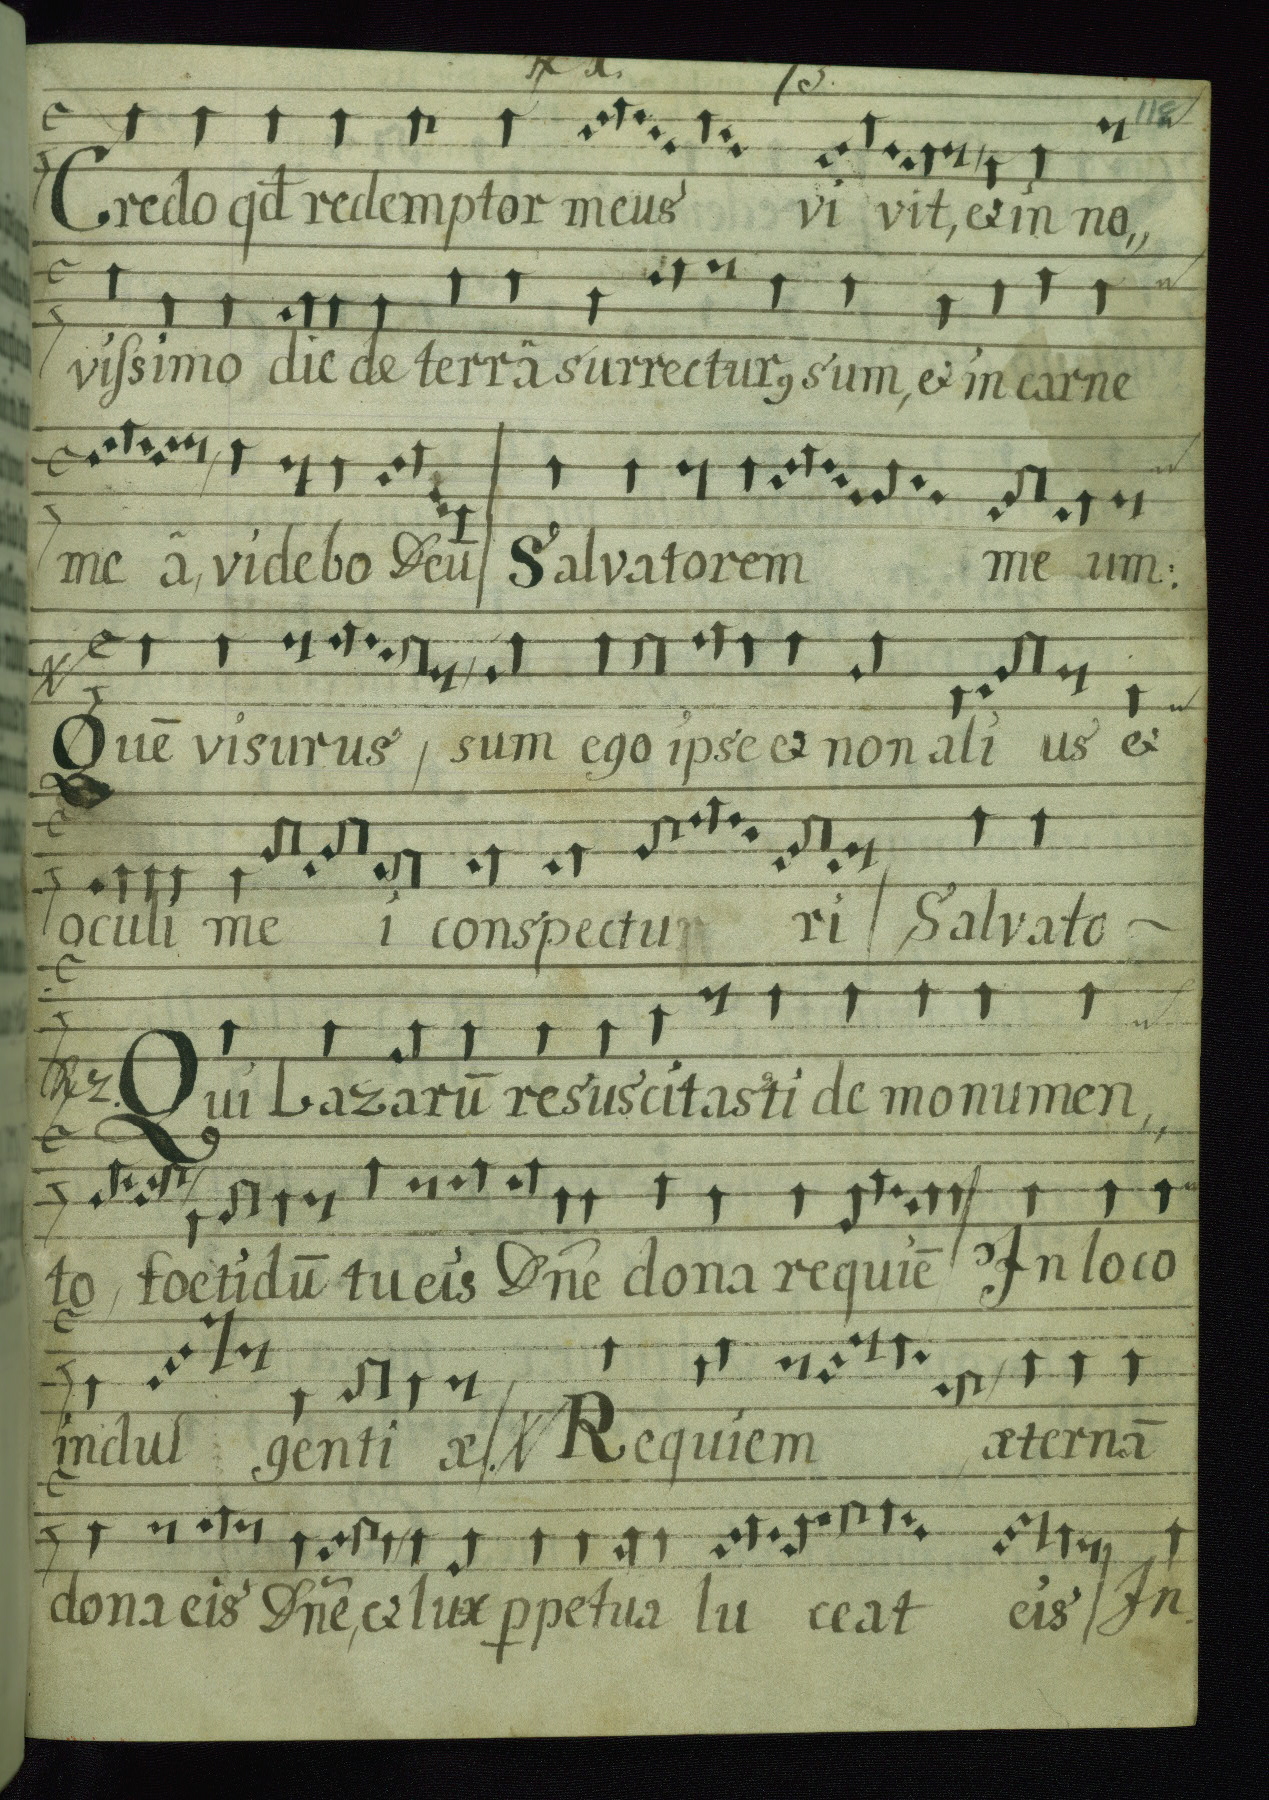 118
Credo qd̄ redemptor meus vi vit, & in no,,
vissimo die de terrā surrectur9 sum, & in carne
me ā, videbo Deū / Salvatorem me um:
Quē visurus, sum ego ipse & non ali us &
oculi me i conspectu ri / Salvato ~
R2. Qui Lazarū resuscitasti de monumen,,
to, foetidū tu eis Dn̄e dona requiē / In loco
indul genti æ /. V Requiem æternā
dona eis Dn̄e, & lux ꝑpetua lu ceat eis / In